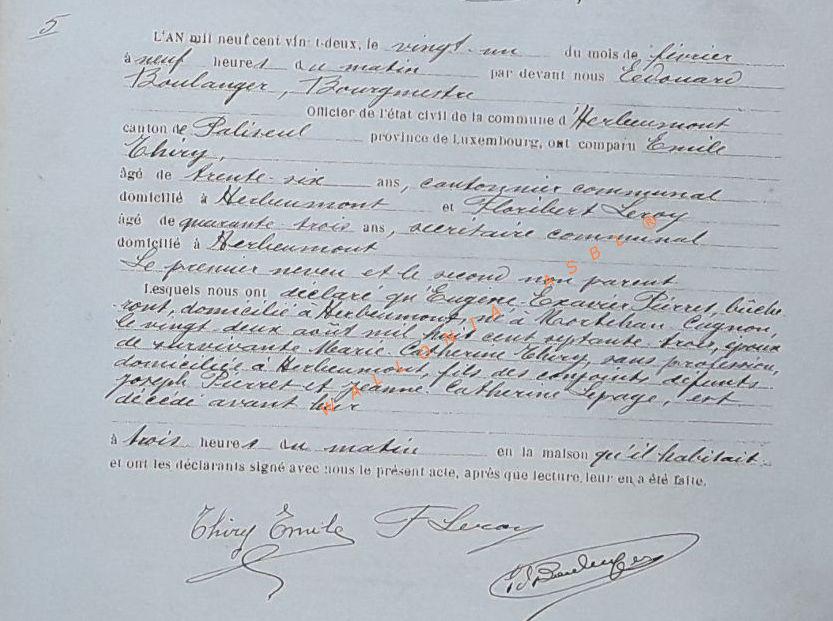 5
L'AN mil neuf cent vin t-deux, le vingt-un du mois de février
à neuf heures du matin par devant nous Edouard
Boulanger, Bourgmestre
Officier de l'état civil de la commune d'Herbeumont
canton de Paliseul province de Luxembourg, ont comparu Emile
Thiry,
âgé de trente-six ans, cantonnier communal
domicilié à Herbeumont et Floribert Leroy
âgé de quarante trois ans, secrétaire communal
domicilié à Herbeumont
Le premier neveu et le second non parent
Lesquels nous ont déclaré qu'Eugène Exavier Pierret, bûche
ront, domicilié à Herbeumont, né à Mortehan Cugnon,
le vingt deux août mil huit cent septante trois, époux
de survivante Marie Catherine Thiry, sans profession,
domiciliée à Herbeumont, fils des conjoints défunts
Joseph Pierret et Jeanne Catherine Lepage, est
décédé avant hier
à trois heures du matin en la maison qu'il habitait
et ont les déclarants signé avec nous le présent acte, après que lecture, leur en a été faite.
Thiry Emile F Leroy
Ed Boulanger
WALLONIA ASBL ®